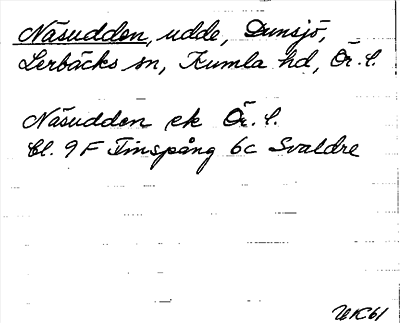 Näsudden, udde, Dunsjö,
Lerbäcks sn, Kumla hd, Ör. l.
Näsudden ek Ör. l.
bl. 9F Finspång 6c Svaldre
UK61